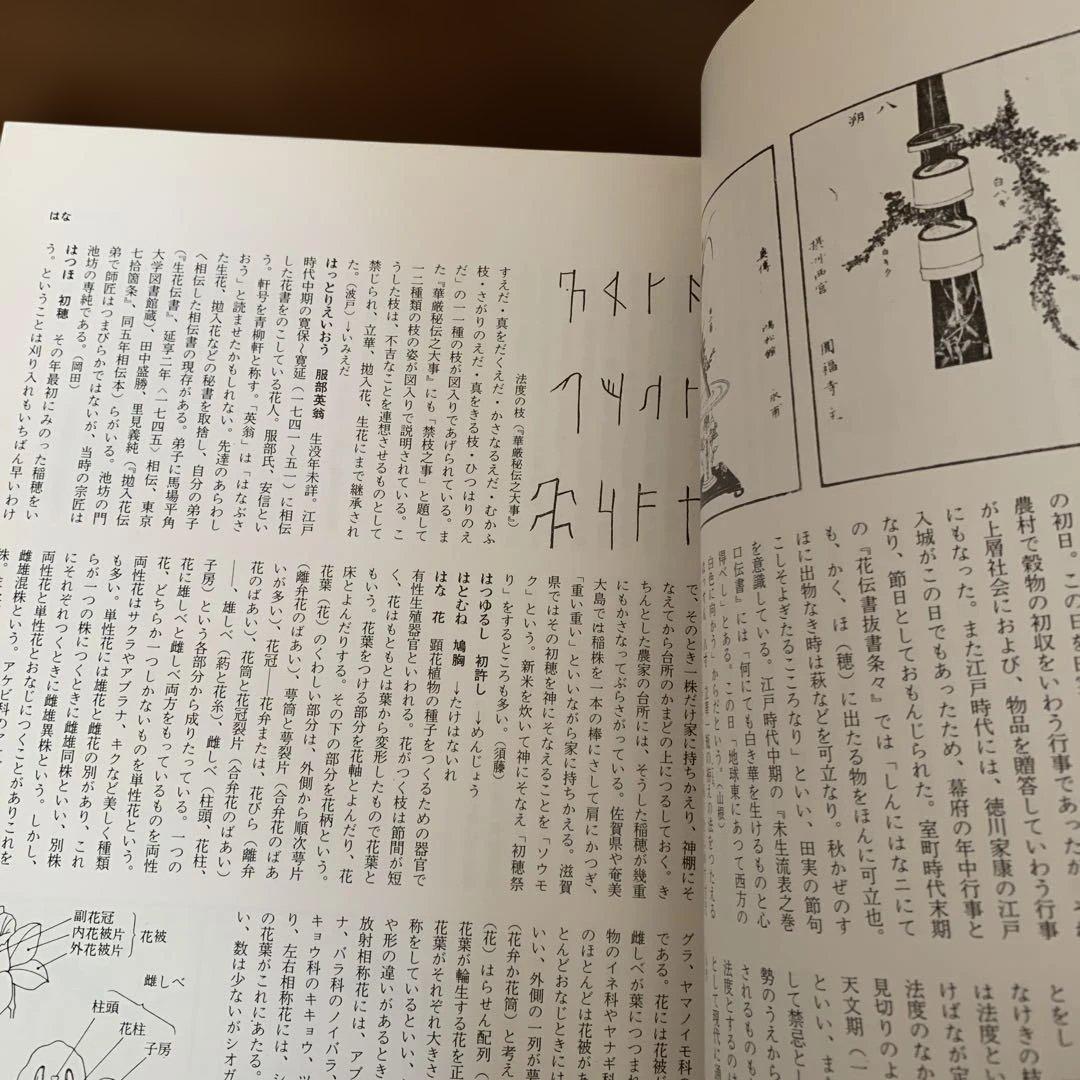 はな
法度の枝(『華厳秘伝之大事』)
すえだ・真をだくえだ・かさなるえだ・むかふ
枝・さがりのえだ・真をきる枝・ひつはりのえ
だ」の一二種の枝が図入りであげられている。ま
『華厳秘伝之大事』にも「禁枝之事」と題して
一二種類の枝の姿が図入りで説明されている。こ
うした枝は、不吉なことを連想させるものとして
禁じられ、立華、抛入花、生花にまで継承され
た。(波戸)→いみえだ
はっとりえいおう 服部英翁 生没年未詳。江戸
時代中期の寛保〜寛延(一七四一〜五一)に相伝
した花書をのこしている花人。服部氏、安信とい
う。軒号を青柳軒と称す。「英翁」は「はなぶさ
おう」と読ませたかもしれない。先達のあらわし
た生花、抛入花などの秘書を取捨し、自分の弟子
へ相伝した相伝書の現存がある。弟子に馬場平角
(『生花伝書』、延享二年〈一七四五〉相伝、東京
大学図書館蔵)、田中盛勝、里見義純(『抛入花伝
七拾箇条』、同五年相伝本)らがいる。池坊の門
弟で師匠はつまびらかではないが、当時の宗匠は
池坊の専純である。(岡田)
はつほ 初穂 その年最初にみのった稲穂をい
う。ということは刈り入れもいちばん早いわけ
で、そのとき一株だけ家に持ちかえり、神棚にそ
なえてから台所のかまどの上につるしておく。き
ちんとした農家の台所には、そうした稲穂が幾重
にもかさなってぶらさがっている。佐賀県や奄美
大島では稲株を一本の棒にさして肩にかつぎ、
「重い重い」といいながら家に持ちかえる。滋賀
県ではその初穂を神にそなえることを「ソウモ
ク」という。新米を炊いて神にそなえ「初穂祭
り」をするところも多い。(須藤)
はつゆるし 初許し →めんじょう
はとむね 鳩胸 →たけはないれ
はな 花 顕花植物の種子をつくるための器官で
有性生殖器官といわれる。花がつく枝は節間が短
く、花はもともとは葉から変形したもので花葉と
もいう。花葉をつける部分を花軸とよんだり、花
床とよんだりする。その下の部分を花柄という。
花葉(花)のくわしい部分は、外側から順次萼片
(離弁花のばあい)、萼筒と萼裂片(合弁花のばあ
いが多い)、花冠――花弁または、花びら(離弁
花のばあい)、花筒と花冠裂片(合弁花のばあい)
――、雄しべ(葯と花糸)、雌しべ(柱頭、花柱、
子房)という各部分から成りたっている。一つの
花に雄しべと雌しべ両方をもっているものを両性
花、どちらか一つしかないものを単性花という。
両性花はサクラやアブラナ、キクなど美しく種類
も多い。単性花には雄花と雌花の別があり、これ
らが一つの株につくときに雌雄同株といい、別株
にそれぞれつくときに雌雄異株という。しかし、
両性花と単性花とおなじにつくことがありこれを
雌雄混株という。アケビ科のア
グラ、ヤマノイモ科
である。花には花被が
雌しべが葉につつま
物のイネ科やヤナギ科
のほとんどは花被が
とんどおなじときには
いい、外側の一列が萼
(花弁か花筒)と考え
(花)はらせん配列(
花葉が輪生する花を正
花葉がそれぞれ大きさ
称をしているといい、
や形の違いがあるとき
放射相称花には、アブ
ナ、バラ科のノイバラ、
キョウ科のキキョウ、ツ
り、左右相称花には、シ
の花葉がこれにあたる。
い、数は少ないがシオガ
副花冠
内花被片
外花被片
花被
雌しべ
柱頭
花柱
子房
八朔
白ハギ
白キク
摂州西宮
圓福寺
の初日。この日を
農村で穀物の初収をいわう行事であったが、
が上層社会におよび、物品を贈答していわう行事
にもなった。また江戸時代には、徳川家康の江戸
入城がこの日でもあったため、幕府の年中行事と
なり、節日としておもんじられた。室町時代末期
の『花伝書抜書条々』では「しんにはなニにて
も、かく、ほ(穂)に出たる物をほんに可立也。
ほに出物なき時は萩などを可立なり。秋かぜのす
こしそよぎたるこころなり」といい、田実の節句
を意識している。江戸時代中期の『未生流表之巻
口伝書』には「何にても白き華を生けるものと心
得べし」とある。この日「地球東にあつて西方の
とをし
なけきの枝
は法度とい
けばなが定
法度のなか
見切りのよ
天文期(一
といい、ま
して禁忌と
勢のうえから
されるものも
法度とするのは
として現代に通